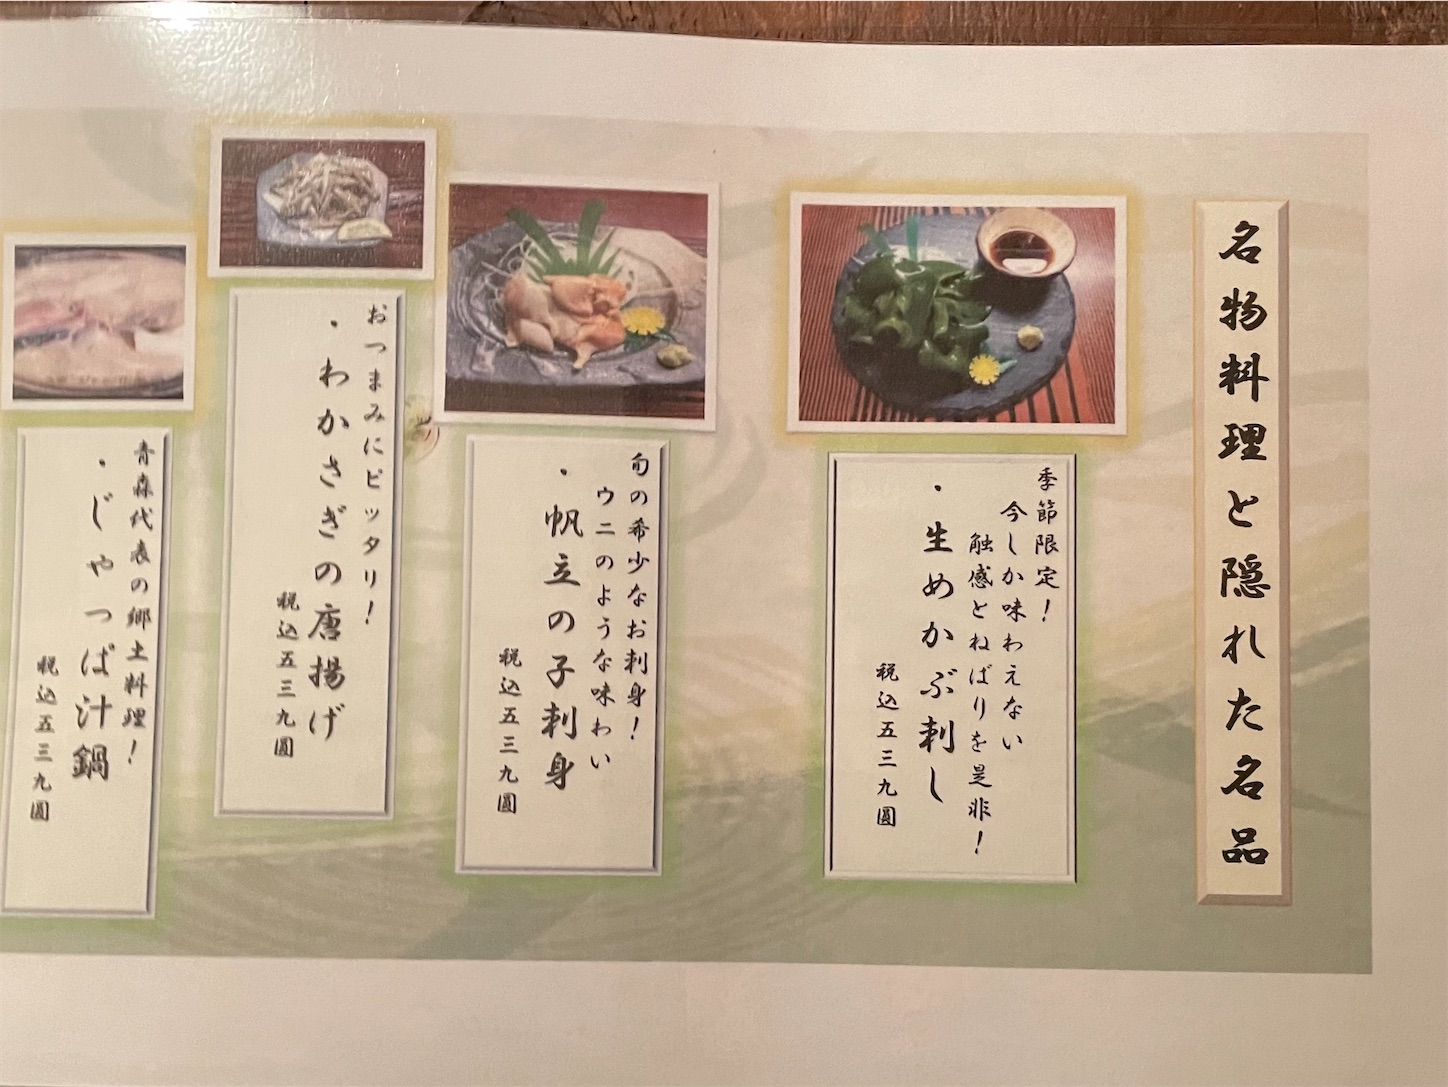 名物料理と隠れた名品
季節限定！
今しか味わえない
触感とねばりを是非！
・生めかぶ刺し
税込五三九圓
旬の希少なお刺身！
ウニのような味わい
・帆立の子刺身
税込五三九圓
おつまみにピッタリ！
・わかさぎの唐揚げ
税込五三九圓
青森代表の郷土料理！
・じゃっぱ汁鍋
税込五三九圓